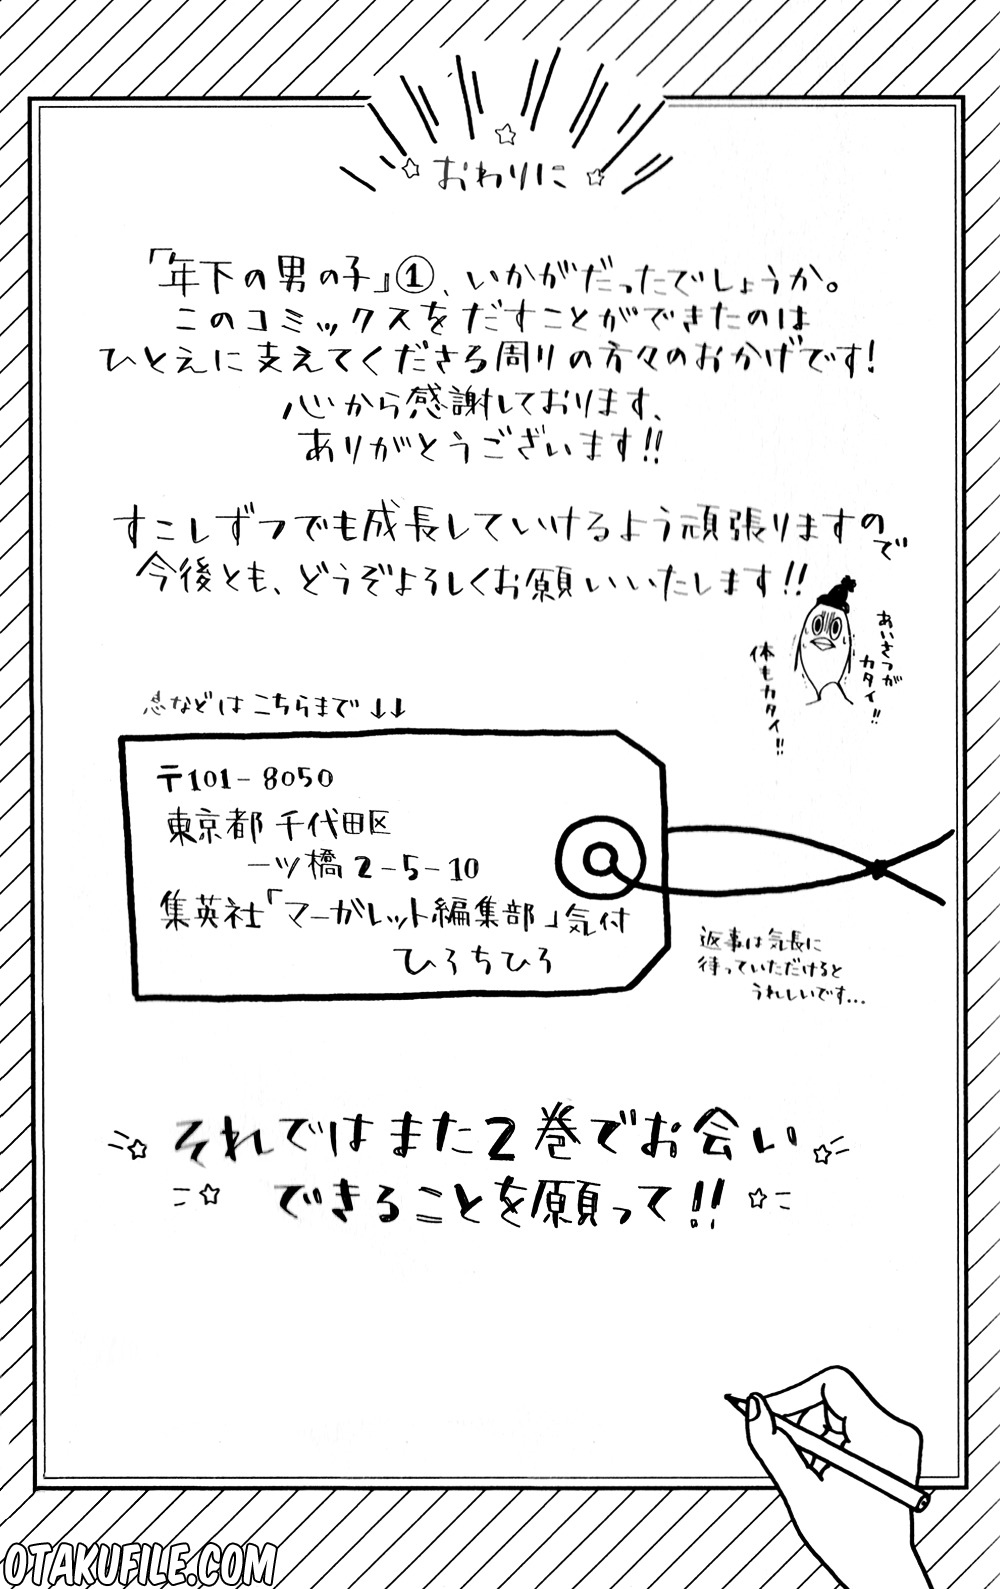 おわりに
「年下の男の子」①、いかがだったでしょうか。
このコミックスをだすことができたのは
ひとえに支えてくださる周りの方々のおかげです!
心から感謝しております、
ありがとうございます!!
すこしずつでも成長していけるよう頑張りますので
今後とも、どうぞよろしくお願いいたします!!
あいさつが
カタイ!!
体もカタイ!!
などはこちらまで↓↓
〒101-8050
東京都千代田区
一ツ橋2-5-10
集英社「マーガレット編集部」気付
ひろちひろ
返事は気長に
待っていただけると
うれしいです...
それではまた2巻でお会い
できることを願って!!
OTAKUFILE.COM